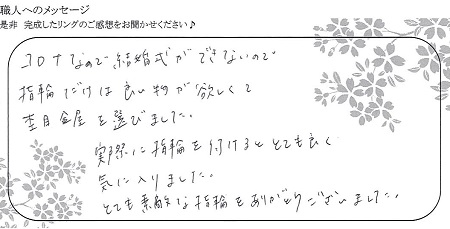 職人へのメッセージ
是非 完成したリングのご感想をお聞かせください♪
コロナなので結婚式ができないので
指輪だけは良い物が欲しくて
杢目金屋を選びました。
実際に指輪を付けるととても良く
気に入りました。
とても素敵な指輪をありがとうございました。